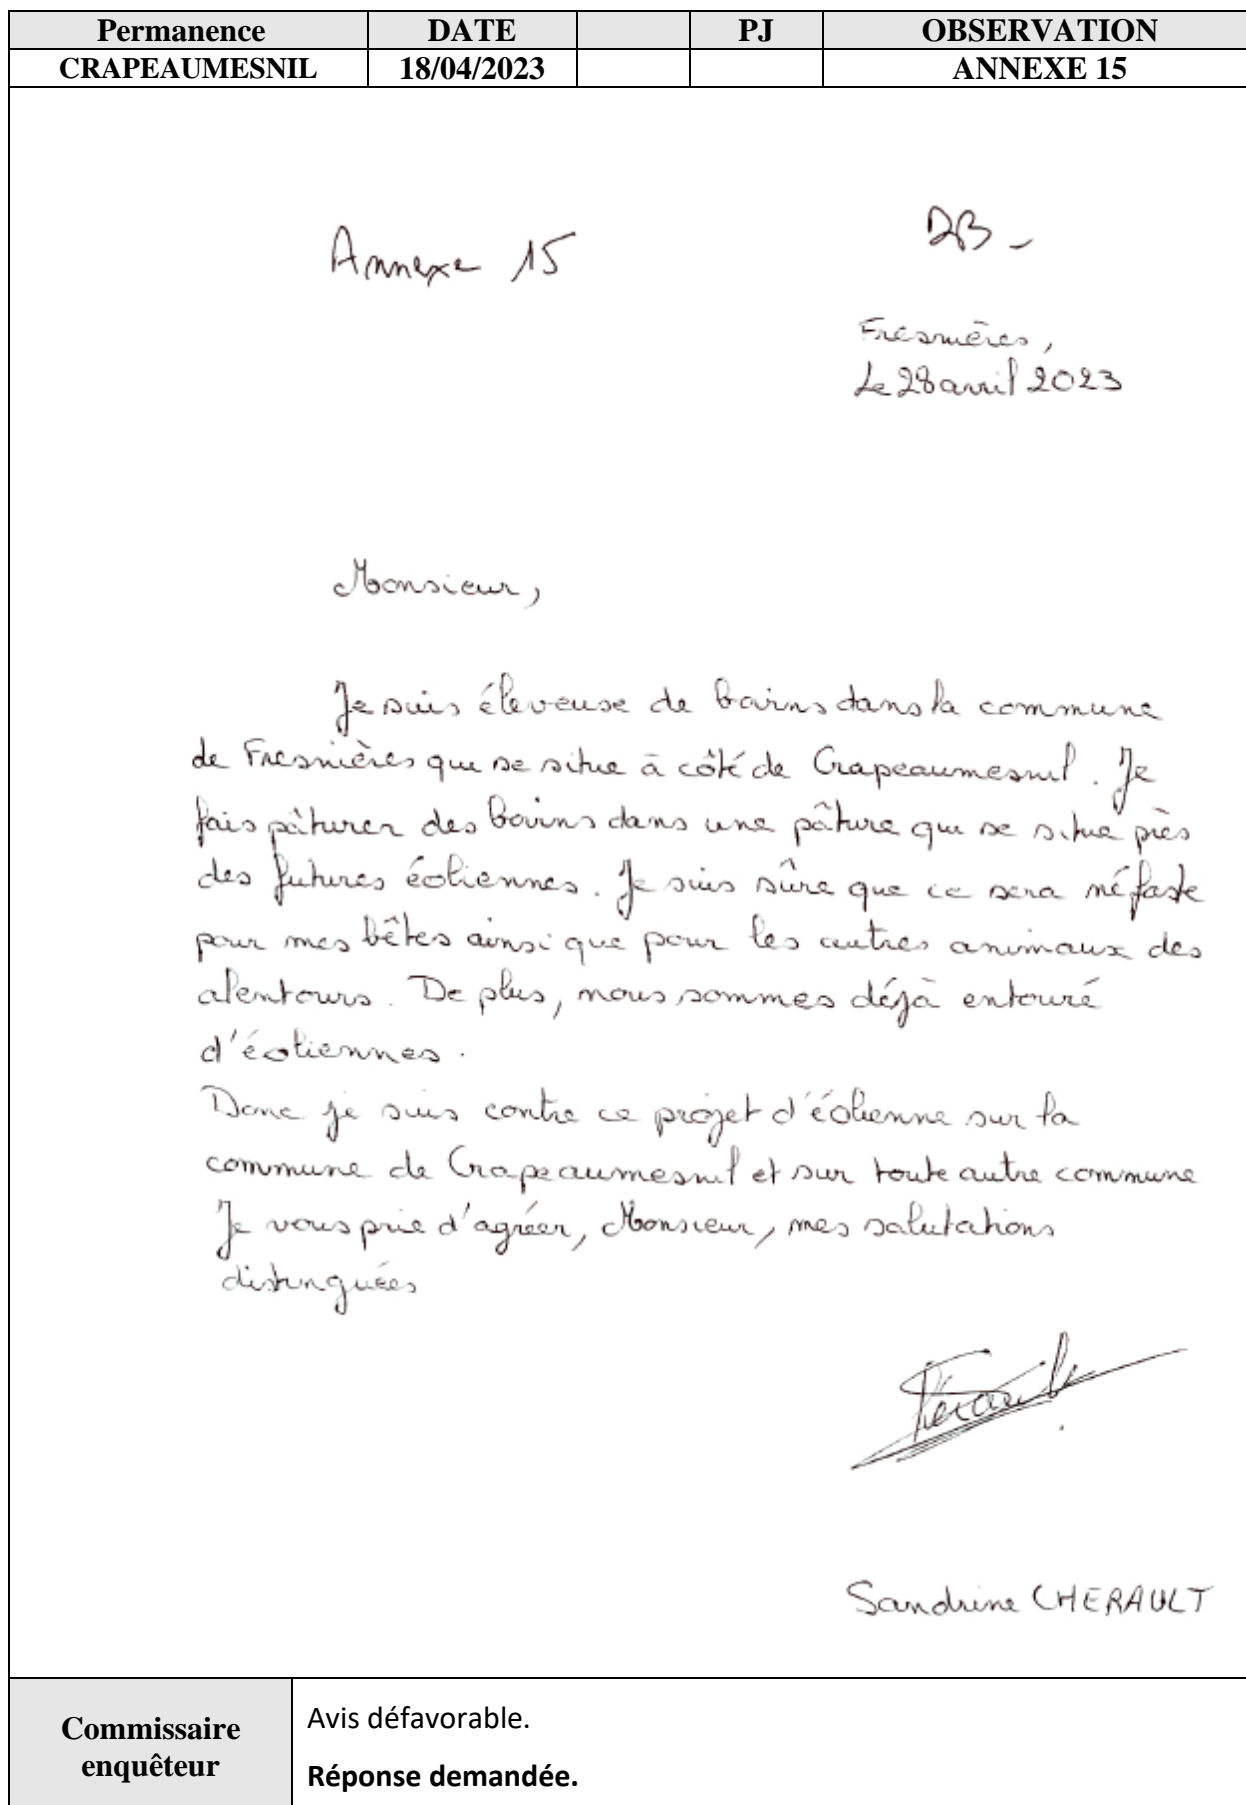 Permanence DATE PJ OBSERVATION
CRAPEAUMESNIL 18/04/2023 ANNEXE 15
Annexe 15
DB -
Fresnières,
Le 28 avril 2023
Monsieur,
Je suis éleveuse de bovins dans la commune
de Fresnières qui se situe à côté de Crapeaumesnil. Je
fais pâturer des bovins dans une pâture qui se situe près
des futures éoliennes. Je suis sûre que ce sera néfaste
pour mes bêtes ainsi que pour les autres animaux des
alentours. De plus, nous sommes déjà entouré
d'éoliennes.
Donc je suis contre ce projet d'éolienne sur la
commune de Crapeaumesnil et sur toute autre commune
Je vous prie d'agréer, Monsieur, mes salutations
distinguées
Sandrine CHERAULT
Commissaire
enquêteur
Avis défavorable.
Réponse demandée.